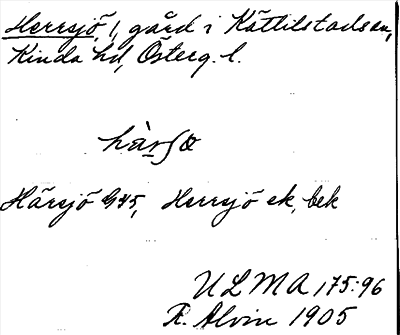 Herrsjö, 1, gård i Kättilstads sn,
Kinda hd, Österg. l.
hàrʃø
Härsjö G45, Herrsjö ek, bek
ULMA 175:96
R. Alvin 1905